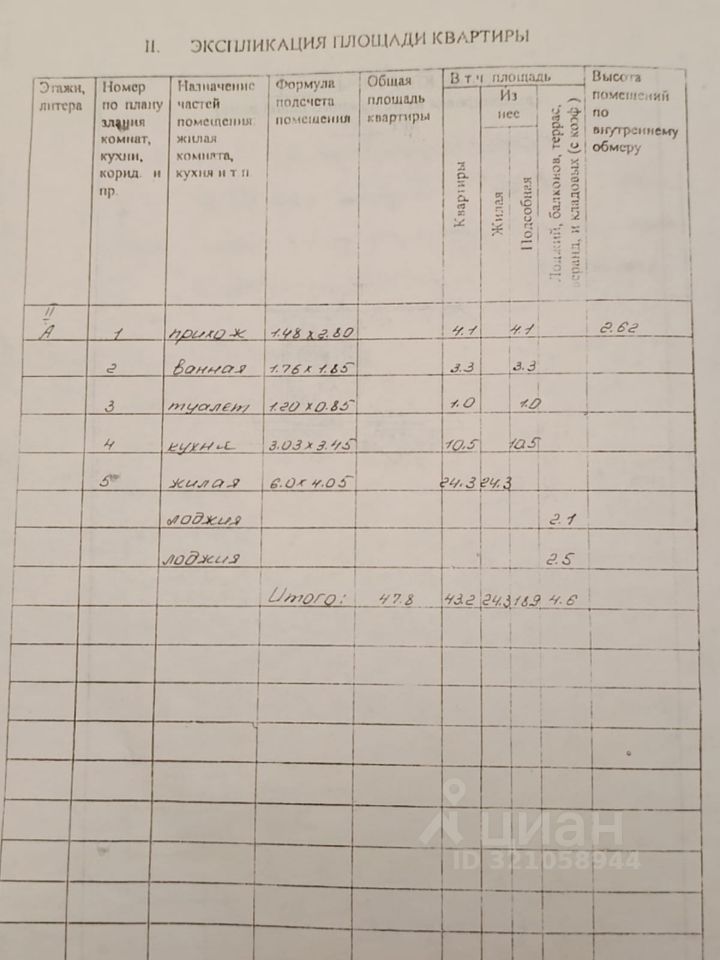 II. ЭКСПЛИКАЦИЯ ПЛОЩАДИ КВАРТИРЫ
Этажи, литера
Номер по плану здания комнат, кухни, корид. и пр.
Назначение частей помещения жилая комната, кухня и т п
Формула подсчета помещения
Общая площадь квартиры
В т.ч. площадь
Квартиры
Из нее
Жилая
Подсобная
Лоджий, балконов, террас, веранд, и кладовых (с коэф.)
Высота помещений по внутреннему обмеру
II
А 1 прихож 1.48 x 2.80 4.1 4.1 2.62
2 ванная 1.76 x 1.85 3.3 3.3
3 туалет 1.20 x 0.85 1.0 1.0
4 кухня 3.03 x 3.45 10.5 10.5
5 жилая 6.0 x 4.05 24.3 24.3
лоджия 2.1
лоджия 2.5
Итого: 47.8 43.2 24.3 18.9 4.6
циан
ID 321058944